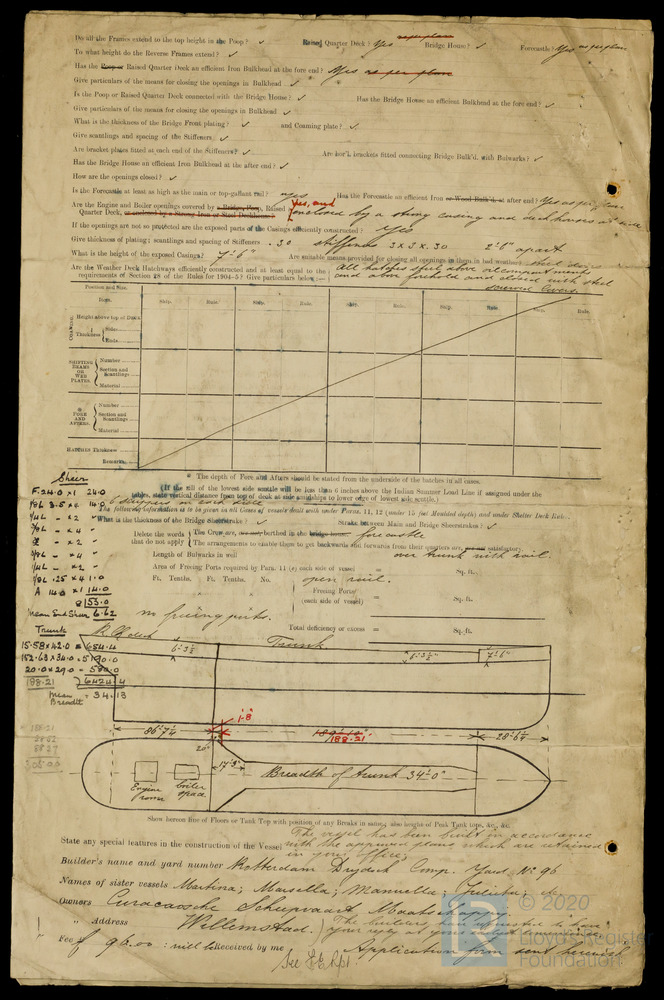 Do all the Frames extend to the top height in the Poop? ✓ Raised Quarter Deck? Yes as per plan Bridge House? ✓ Forecastle yes as per plan
To what height do the Reverse Frames extend? ✓
Has the Poop or Raised Quarter Deck an efficient Iron Bulkhead at the fore end? Yes as per plan
Give particulars of the means for closing the openings in Bulkhead ✓
Is the Poop or Raised Quarter Deck connected with the Bridge House? ✓ Has the Bridge House an efficient Bulkhead at the fore end? ✓
Give particulars of the means for closing the openings in Bulkhead ✓
What is the thickness of the Bridge Front plating? ✓ and Coaming plate? ✓
Give scantlings and spacing of the Stiffeners ✓
Are bracket plates fitted at each end of the Stiffeners? ✓ Are hor'l. brackets fitted connecting Bridge Bulk'd. with Bulwarks? ✓
Has the Bridge House an efficient Iron Bulkhead at the after end? ✓
How are the openings closed? ✓
Is the Forecastle at least as high as the main or top-gallant rail? yes Has the Forecastle an efficient Iron or Wood Bulk'd. at after end? Yes as per plan
Are the Engine and Boiler openings covered by a Bridge, Poop, Raised Yes, and
Quarter Deck, or enclosed by a Strong Iron or Steel Deckhouse? enclosed by a strong casing and deckhouses at side
If the openings are not so protected are the exposed parts of the Casings efficiently constructed? yes
Give thickness of plating; scantlings and spacing of Stiffeners .30 stiffeners 3 x 3 x .30 2'-6" apart
What is the height of the exposed Casings? 7'-6" Are suitable means provided for closing all openings in them in bad weather? steel doors
Are the Weather Deck Hatchways efficiently constructed and at least equal to the All hatches steel above oil compartments
requirements of Section 28 of the Rules for 1904-5? Give particulars below:— and above forehold and closed with steel
screwed covers.
Position and Size.
Item. Ship. Rule. Ship. Rule. Ship. Rule. Ship. Rule. Ship. Rule.
COAMING Height above top of Deck
Thickness Sides
Ends
SHIFTING BEAMS OR WEB PLATES Number
Section and Scantlings
Material
* FORE AND AFTERS. Number
Section and Scantlings
Material
HATCHES Thickness
Remarks
* The depth of Fore and Afters should be stated from the underside of the hatches in all cases.
(If the sill of the lowest side scuttle will be less than 6 inches above the Indian Summer Load Line if assigned under the
tables, state vertical distance from top of deck at side amidships to lower edge of lowest side scuttle.)
The following information is to be given in all Cases of vessels dealt with under Paras. 11, 12 (under 15 for Moulded depth) and under Shelter Deck Rule.
What is the thickness of the Bridge Sheerstrake? ✓ Strake between Main and Bridge Sheerstrakes? ✓
Delete the words The Crew are, are not, berthed in the bridge house forecastle
that do not apply The arrangements to enable them to get backwards and forwards from their quarters are, are not satisfactory.
Length of Bulwarks in well over trunk with rail.
Area of Freeing Ports required by Para. 11 (e) each side of vessel = Sq. ft.
Ft. Tenths. Ft. Tenths. No. open rail.
Freeing Ports (each side of vessel) = Sq. ft.
Total deficiency or excess = Sq. ft.
Sheer
F. 24.0 x 1 24.0
Mean End Sheer 6.62
Trunk
15.58 x 42.0 = 654.4
152.63 x 34.0 = 5190.0
20.0 x 29.0 = 580.0
188.21 6424.4
Mean Breadth = 34.13
no freeing ports.
R.Q. deck 6'-3½" Trunk 6'-3½" 7'-6"
1'-8
86'-7¼" 188.21 28'-6¼"
20" 17'-3"
Breadth of trunk 34'-0"
Engine room boiler space
Show hereon line of Floors or Tank Top with position of any Breaks in same; also height of Peak Tank tops, &c., &c.
State any special features in the construction of the Vessel The vessel has been built in accordance
with the approved plans which are retained
in your office;
Builder's name and yard number Rotterdam Drydock Comp. Yard No. 96
Names of sister vessels Martina; Marsella; Manuella; Felicia; etc.
Owners Curacaosche Scheepvaart Maatschappij.
" Address Willemstad.
Fee f 96.00 : will be Received by me Application form sent herewith
© 2020
Lloyd's Register
Foundation